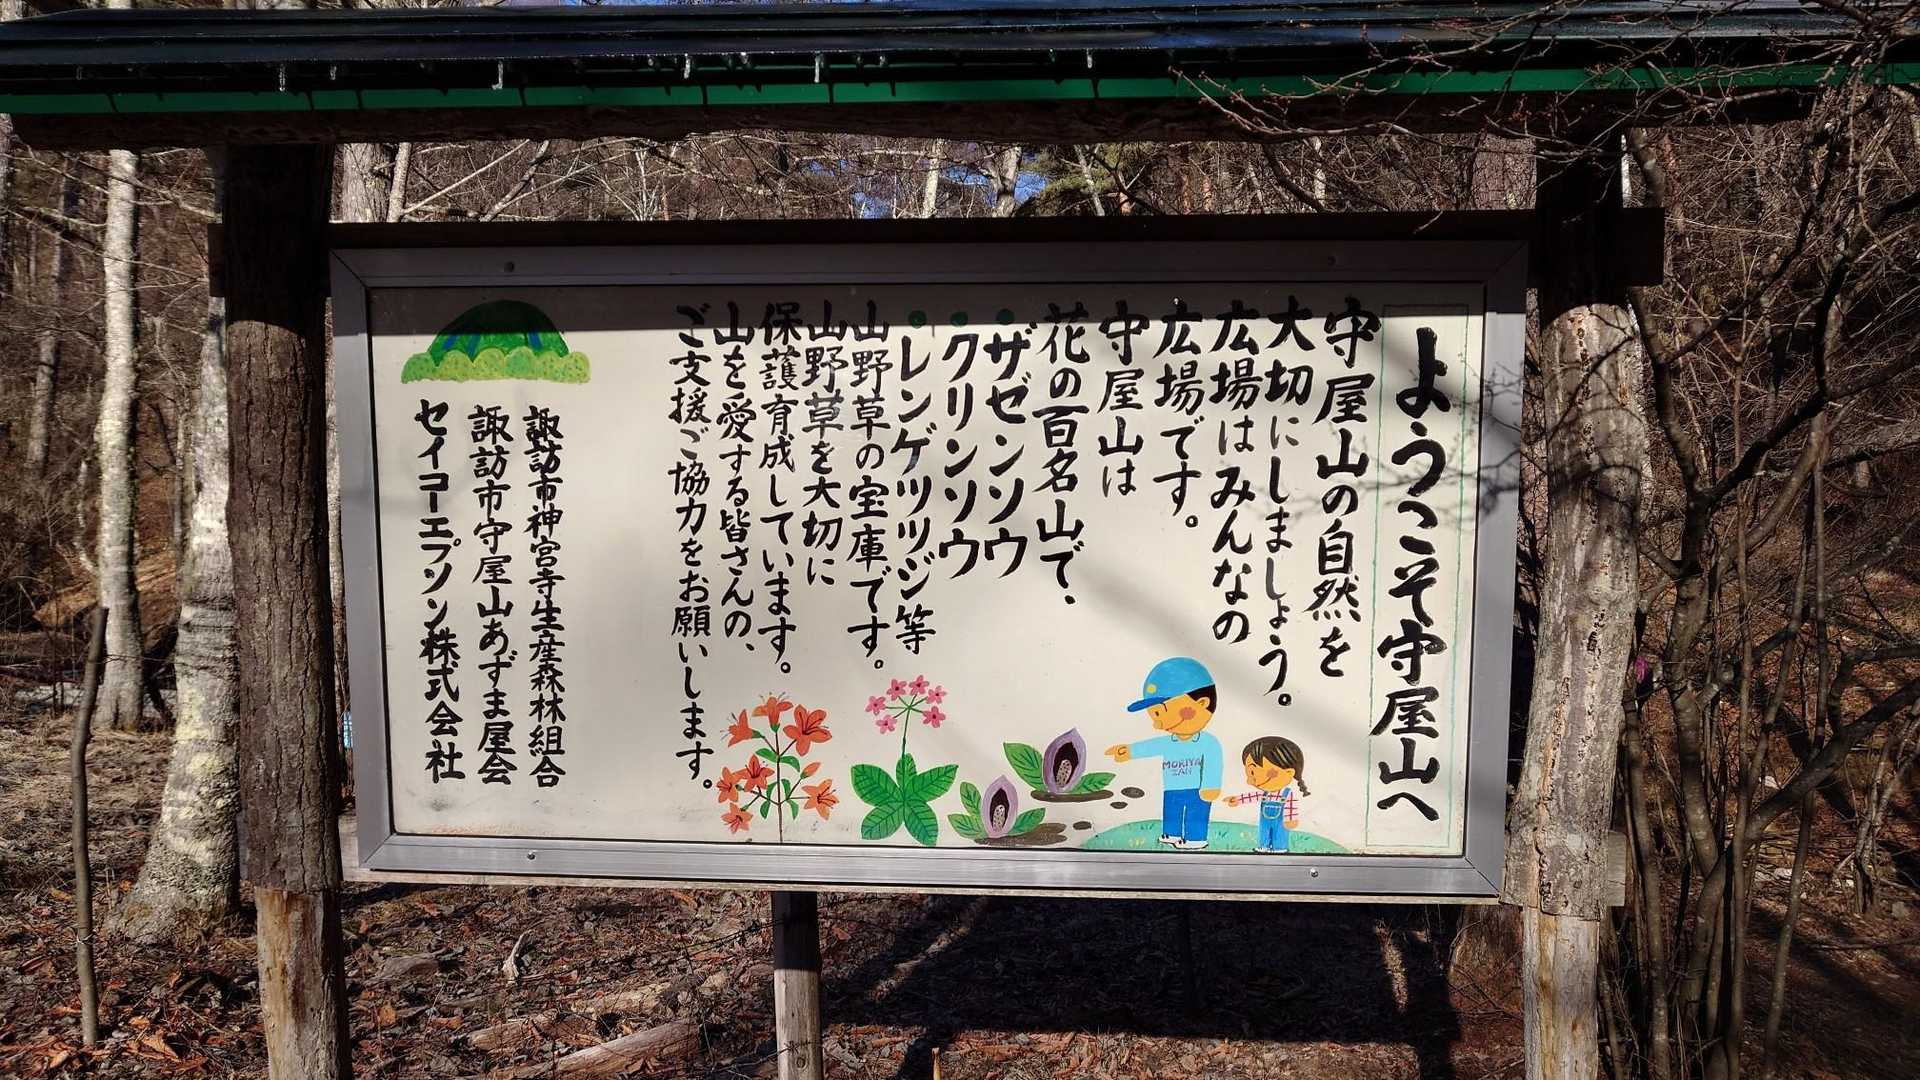 ようこそ守屋山へ
守屋山の自然を
大切にしましょう。
広場はみんなの
広場です。
守屋山は
花の百名山で、
・ザゼンソウ
・クリンソウ
・レンゲツツジ等
山野草の宝庫です。
山野草を大切に
保護育成しています。
山を愛する皆さんの、
ご支援ご協力をお願いします。
諏訪市神宮寺生産森林組合
諏訪市守屋山あずま屋会
セイコーエプソン株式会社
MORIYA
SAN